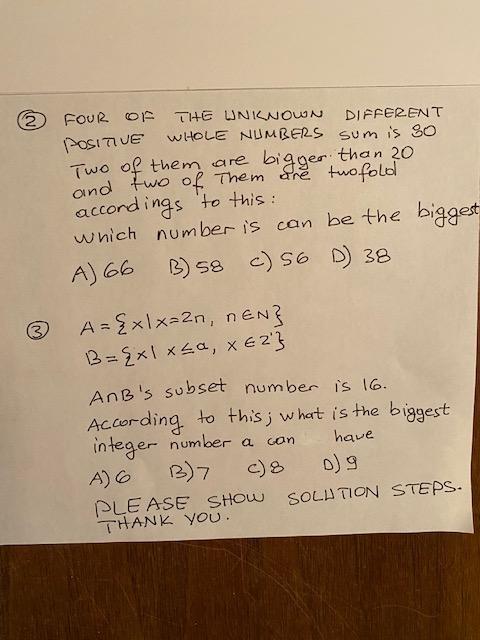 ② FOUR OF THE UNKNOWN DIFFERENT
POSITIVE WHOLE NUMBERS sum is 80
Two of them are bigger than 20
and two of Them are twofold
accordings to this:
which number is can be the biggest
A) 66 B) 58 C) 56 D) 38
③ A = {x | x=2n, n∈N}
B = {x | x≤a, x∈Z'}
A∩B's subset number is 16.
According to this; what is the biggest
integer number a can have
A) 6 B) 7 C) 8 D) 9
PLEASE SHOW SOLUTION STEPS.
THANK YOU.